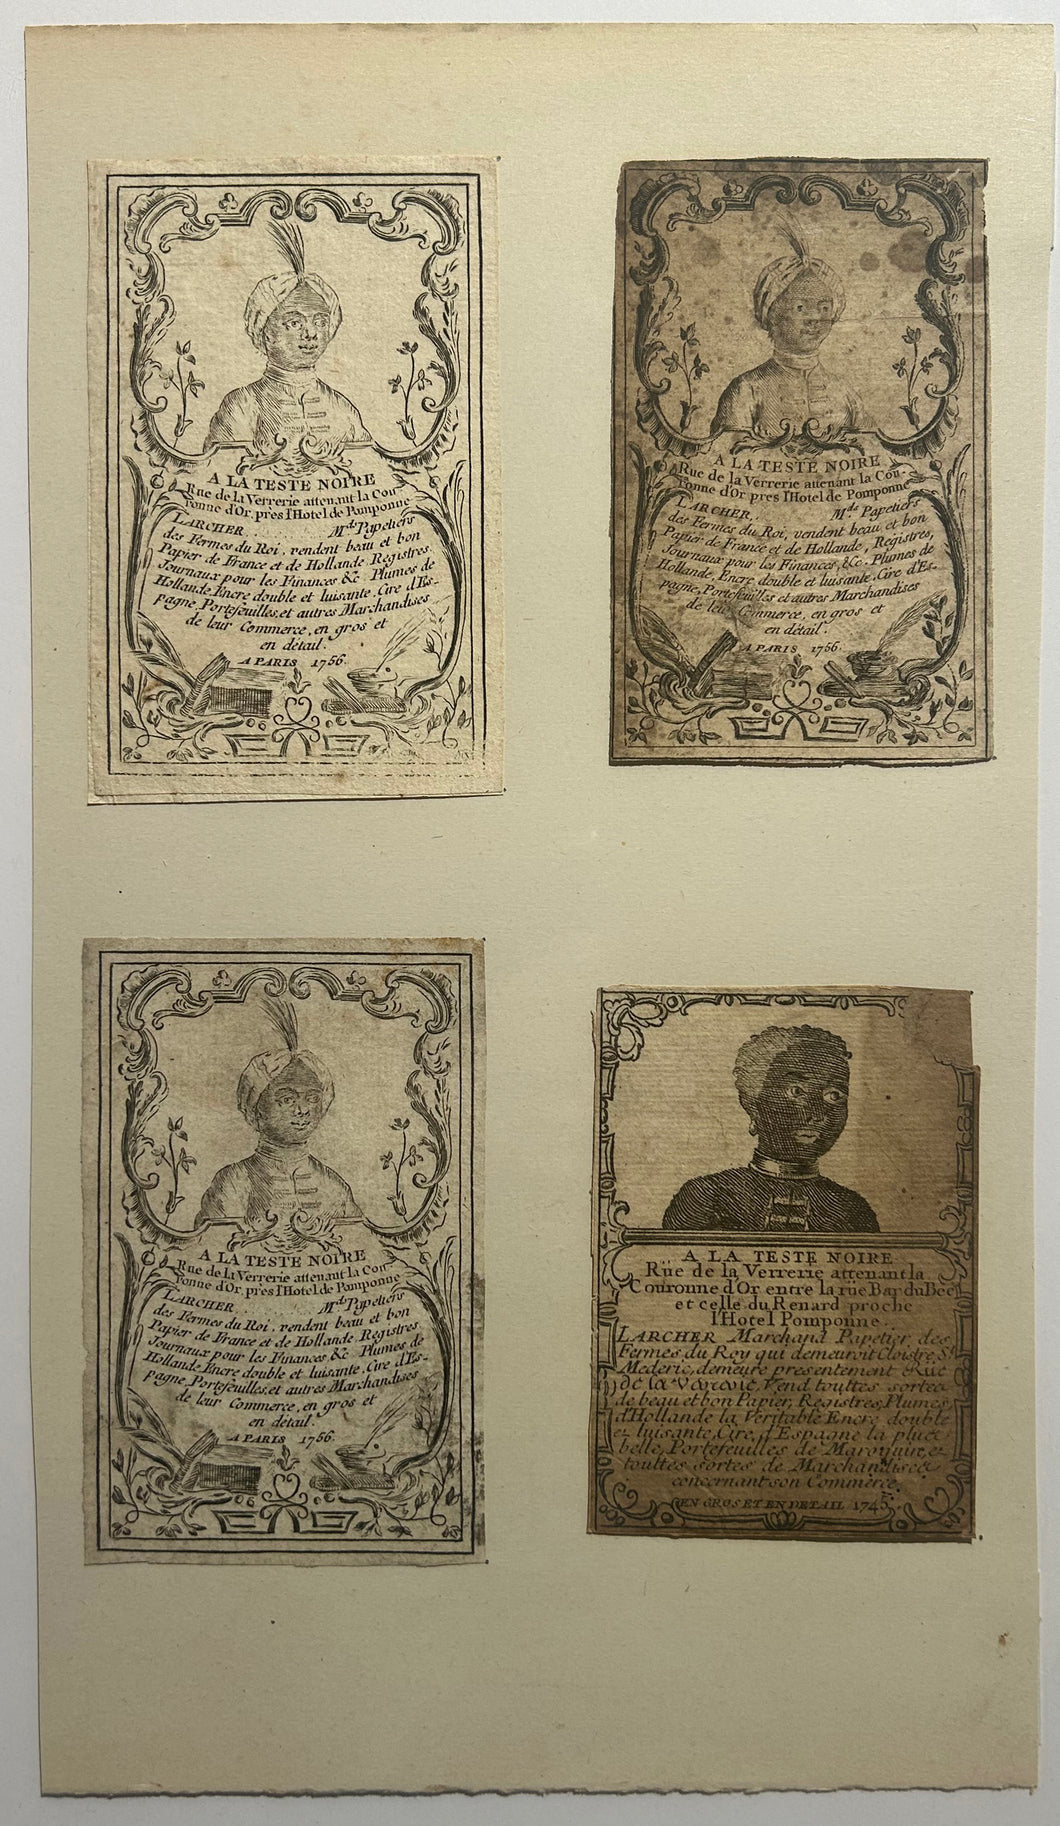 A LA TESTE NOIRE
Rue de la Verrerie attenant la Cou-
ronne d'Or, pres l'Hotel de Pomponne
LARCHER . . . . . . . Mds Papetiers
des Fermes du Roi, vendent beau et bon
Papier de France et de Hollande, Registres
Journaux pour les Finances &c. Plumes de
Hollande, Encre double et luisante, Cire d'Es-
pagne, Portefeuilles, et autres Marchandises
de leur Commerce, en gros et
en détail.
A PARIS 1756.
A LA TESTE NOIRE
Rue de la Verrerie attenant la Cou-
ronne d'Or pres l'Hotel de Pomponne
LARCHER . . Mds Papetiers
des Fermes du Roi, vendent beau et bon
Papier de France et de Hollande, Registres,
Journaux pour les Finances, &c. Plumes de
Hollande, Encre double et luisante, Cire d'Es-
pagne, Portefeuilles et autres Marchandises
de leur Commerce, en gros et
en détail.
A PARIS 1756.
A LA TESTE NOIRE
Rue de la Verrerie attenant la Cou-
ronne d'Or, pres l'Hotel de Pomponne
LARCHER . . . . . . . Mds Papetiers
des Fermes du Roi, vendent beau et bon
Papier de France et de Hollande, Registres
Journaux pour les Finances &c. Plumes de
Hollande, Encre double et luisante, Cire d'Es-
pagne, Portefeuilles, et autres Marchandises
de leur Commerce, en gros et
en détail.
A PARIS 1756.
A LA TESTE NOIRE
Rüe de la Verrerie attenant la
Couronne d'Or entre la rüe Bar du Bec
et celle du Renard proche
l'Hotel Pomponne.
LARCHER Marchand Papetier des
Fermes du Roy qui demeuroit Cloistre St
Mederic, demeure presentement Rüe
de la Verrerie, Vend touttes sortes
de beau et bon Papier, Registres, Plumes
d'Hollande la Veritable Encre double
et luisante, Cire, d'Espagne la plus
belle, Portefeuilles de Maroquin, et
touttes sortes de Marchandises
concernant son Commerce.
EN GROS ET EN DETAIL 1745.